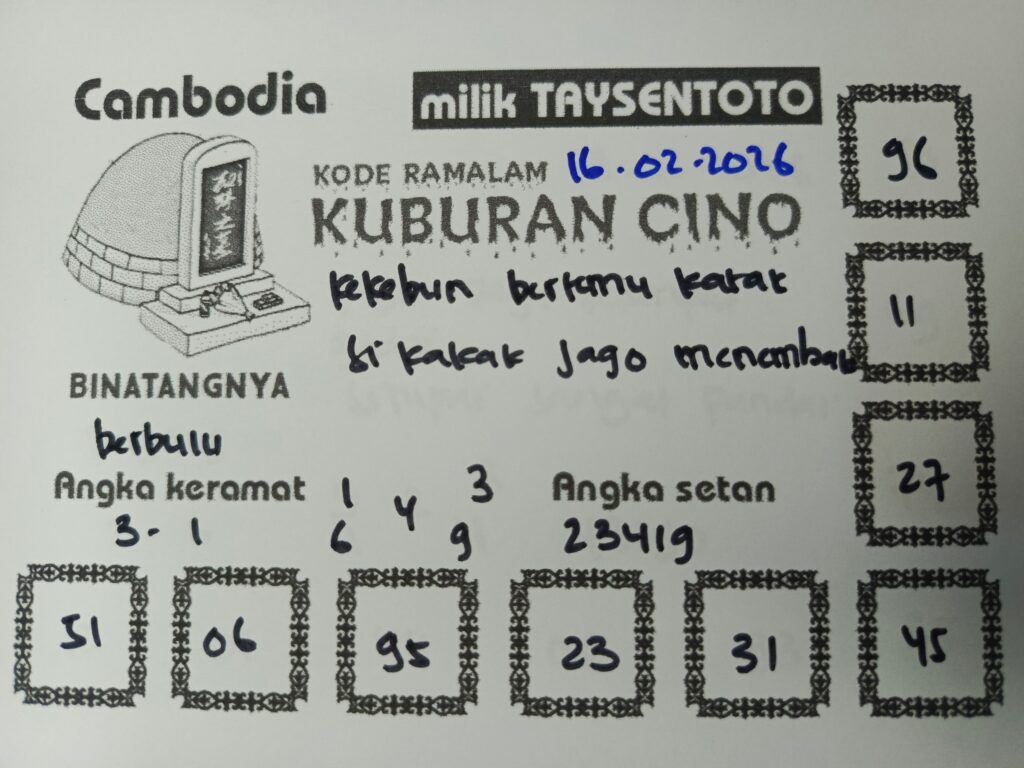 Cambodia
milik TAYSENTOTO
KODE RAMALAM 16.02.2026
KUBURAN CINO
kekebun bertemu katak
si kakak jago menembak
BINATANGNYA
berbulu
Angka keramat
3-1
1 4 3
6 9
Angka setan
23419
96
11
27
51 06 95 23 31 45